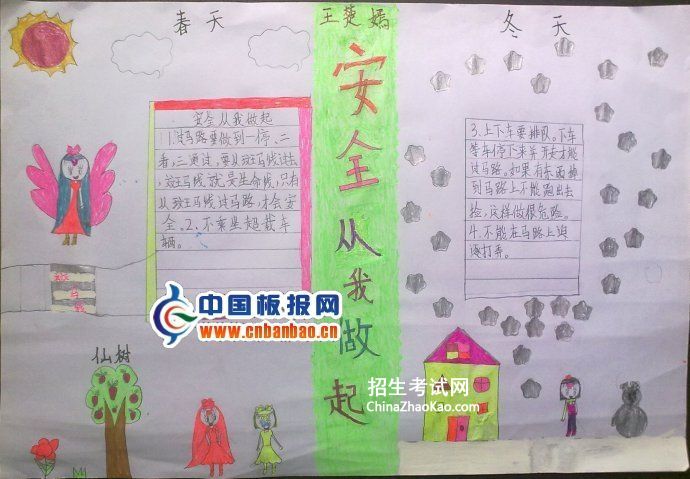 春天
王楚嫣
冬天
安全从我做起
安全从我做起
1.过马路要做到一停、二
看,三通过,要从斑马线过去
,斑马线就是生命线,只有
从斑马线过马路,才会安
全。2、不乘坐超载车
辆。
3.上下车要排队。下车
等车停下来并开走才能
过马路。如果有东西掉
到马路上不能跑出去
捡,这样做很危险。
4.不能在马路上追
逐打弄。
斑
马
线
中国板报网
www.cnbanbao.cn
仙树
招生考试网
ChinaZhaoKao.com